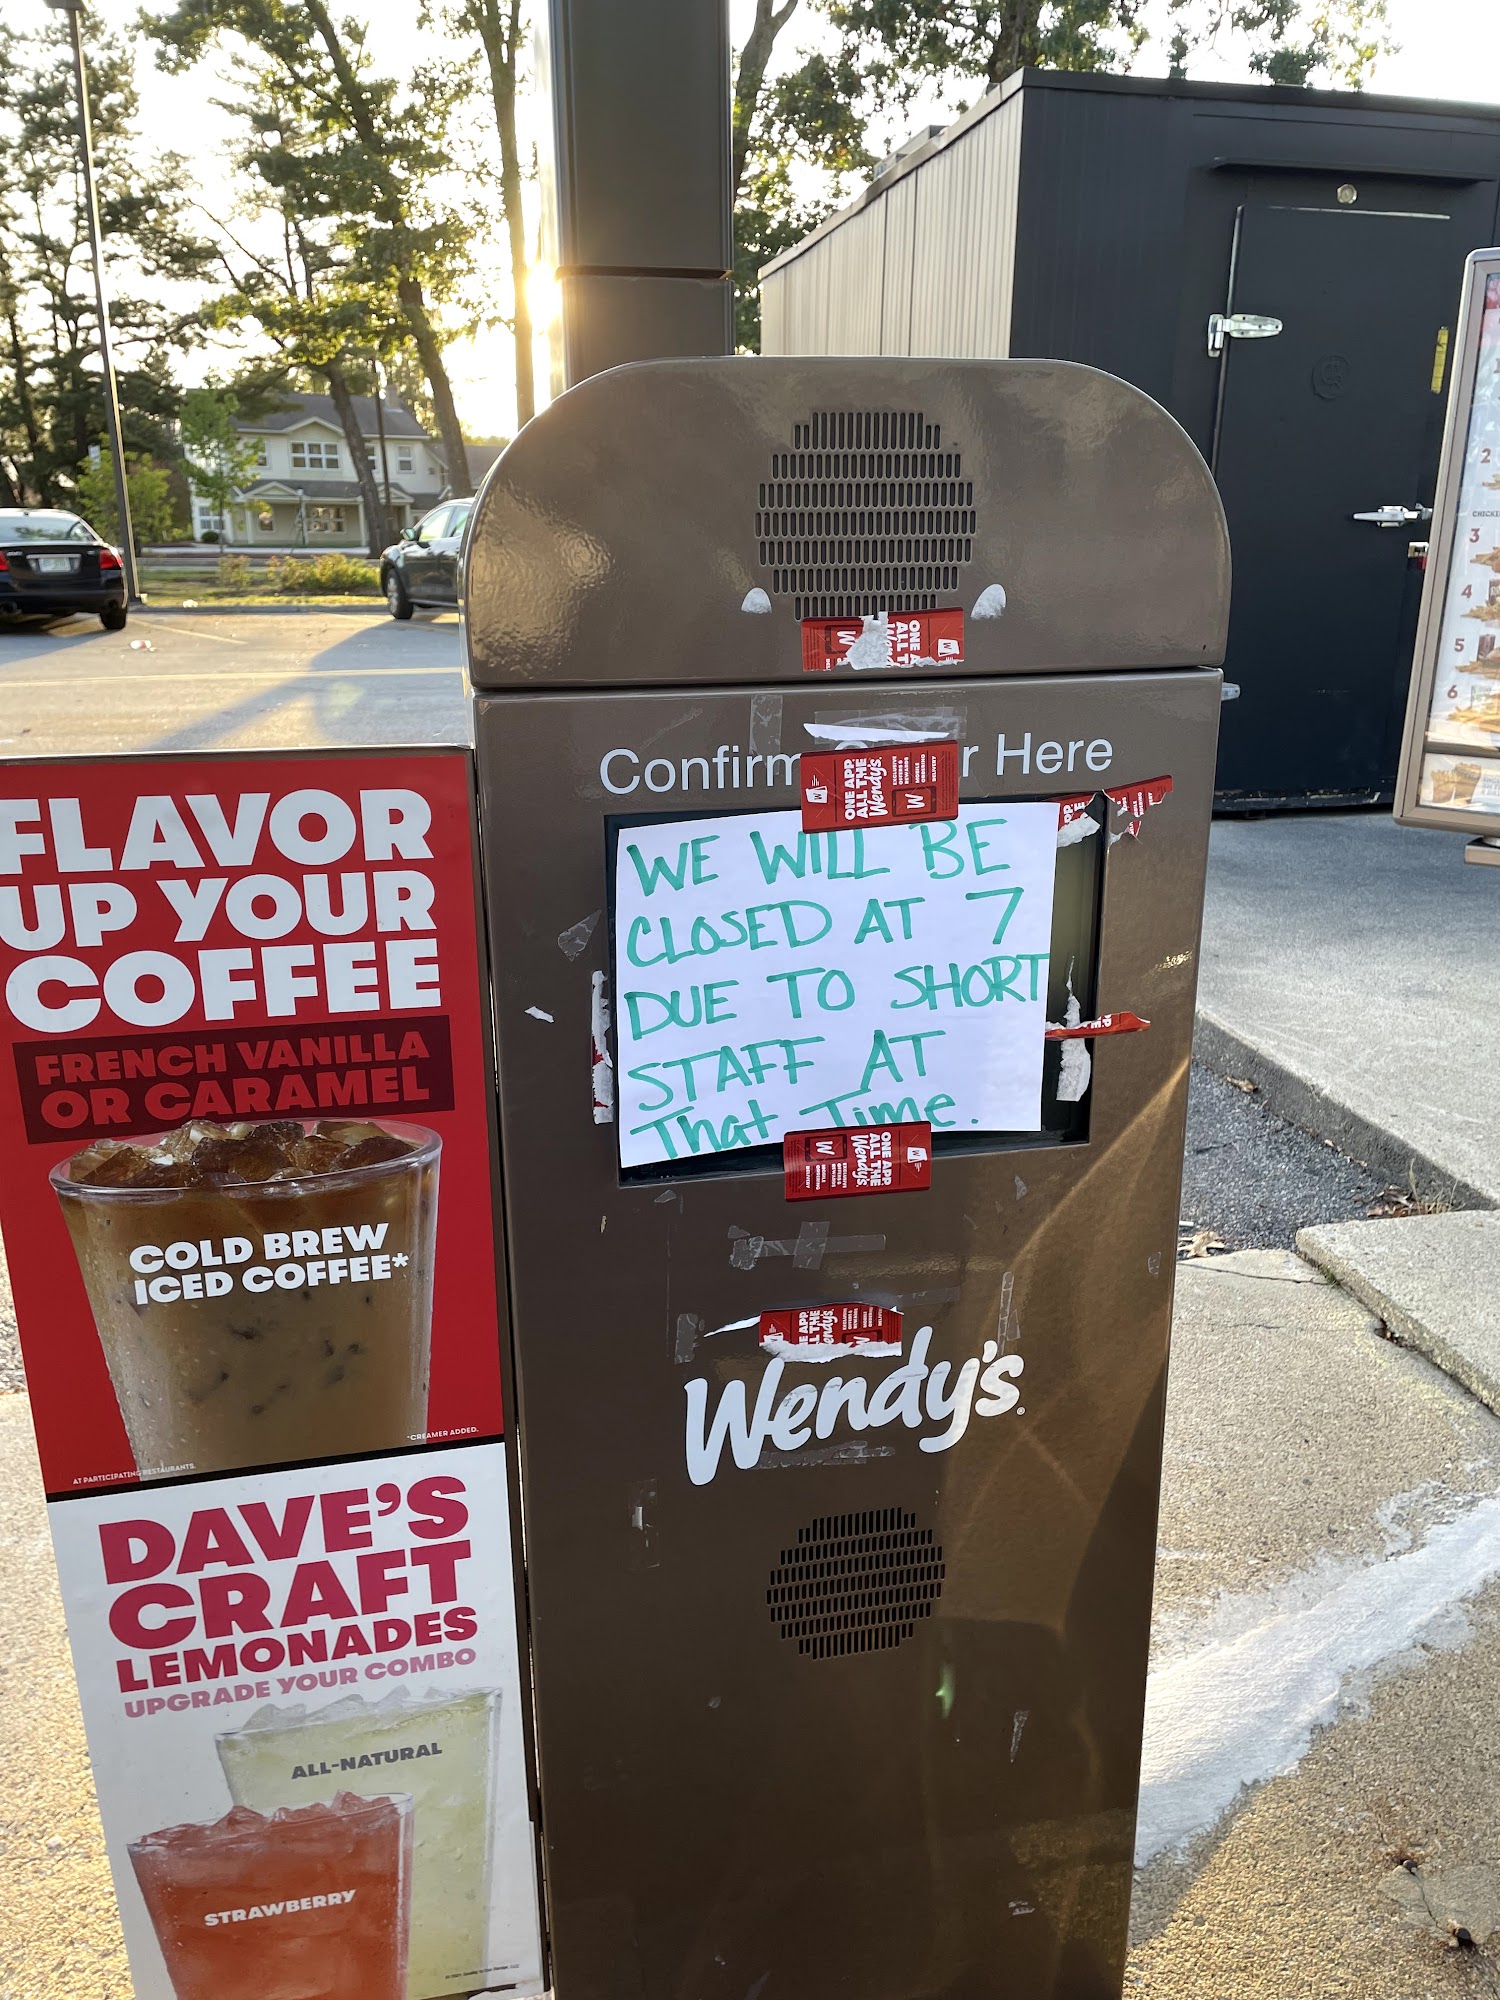 Confirm
r Here
ONE APP.
ALL THE
Wendy's.
WE WILL BE
CLOSED AT 7
DUE TO SHORT
STAFF AT
That Time.
ONE APP.
ALL THE
Wendy's.
Wendy's
FLAVOR
UP YOUR
COFFEE
FRENCH VANILLA
OR CARAMEL
COLD BREW
ICED COFFEE*
*CREAMER ADDED.
AT PARTICIPATING RESTAURANTS.
DAVE'S
CRAFT
LEMONADES
UPGRADE YOUR COMBO
ALL-NATURAL
STRAWBERRY
2
3
4
5
6